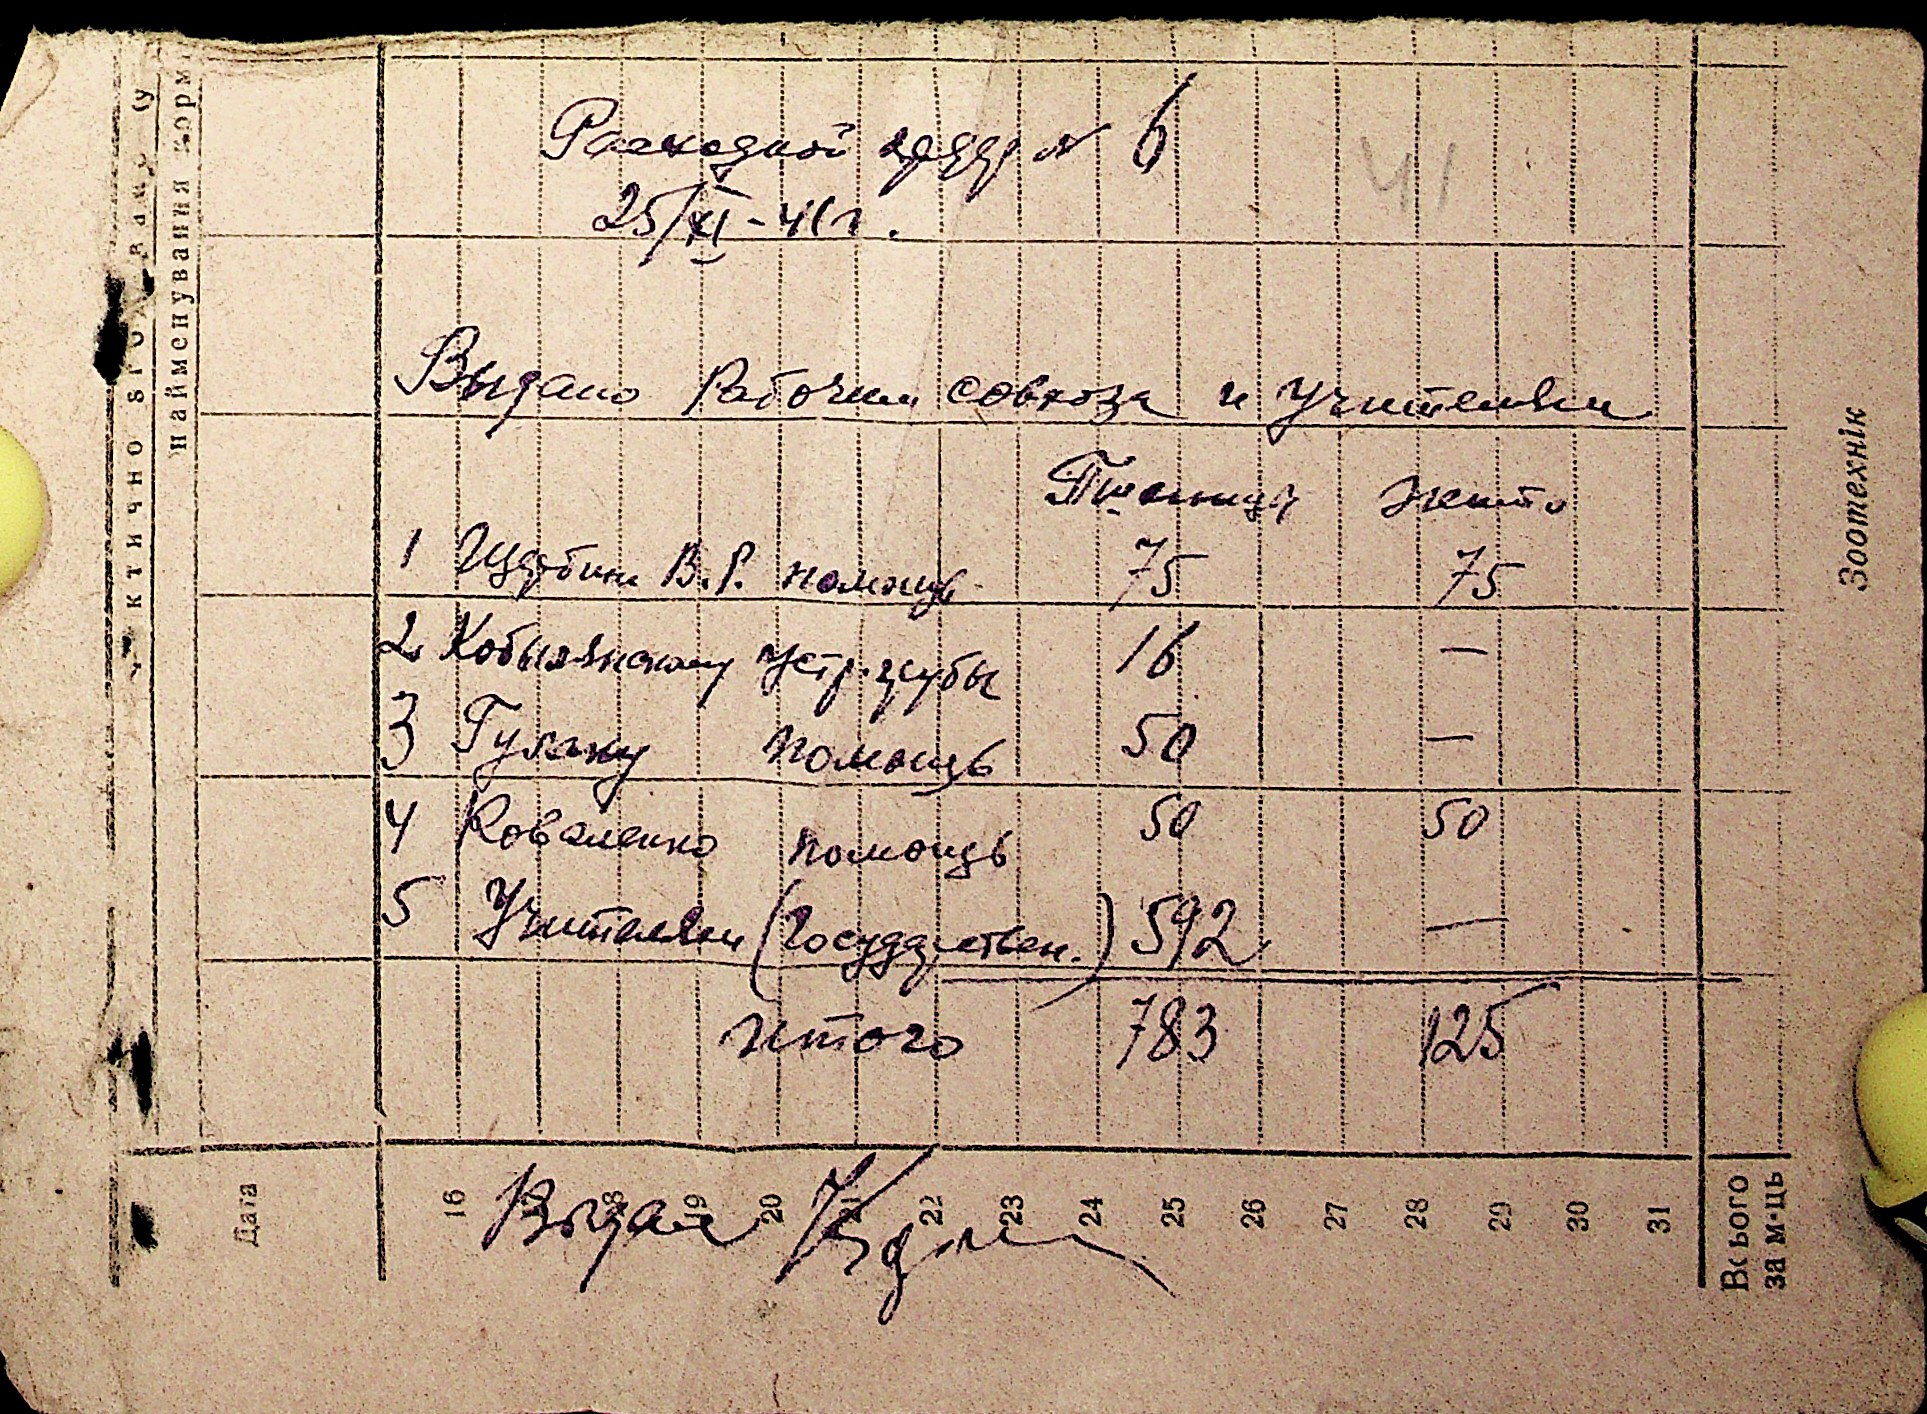 Расходной ордер № 6
25/XI-41 г.
41
Выдано Рабочим совхоза и Учителям
Пшеница жито
1 Щербин В.Р. помощь 75 75
2 Кобылянскому устр. трубы 16 —
3 Гулаку помощь 50 —
4 Коваленко помощь 50 50
5 Учителям (государствен.) 592 —
Итого 783 125
Выдал
Дата 16 18 19 20 21 22 23 24 25 26 27 28 29 30 31
Всього
за м-ць
найменування корм
Зоотехнік